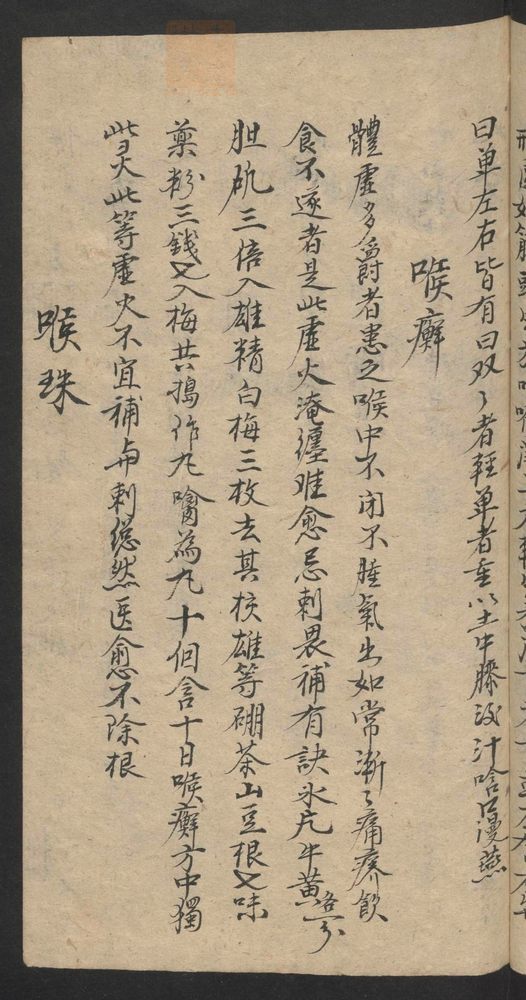 曰单左右皆有曰双々者轻单者重以土牛膝汁噙口漫燕
喉癬
體虛多爵者患之喉中不闭不腫氣出如常漸々痛痒飲
食不遂者是此虛火淹纏难愈忌刺畏補有訣氷片牛黃各一分
胆矾三倍入雄精白梅三枚去其核雄等硼茶山豆根又味
藥粉三錢又入梅共搗作丸噙為丸十個含十日喉癬方中獨
此灵此等虛火不宜補与刺縂然医愈不除根
喉珠